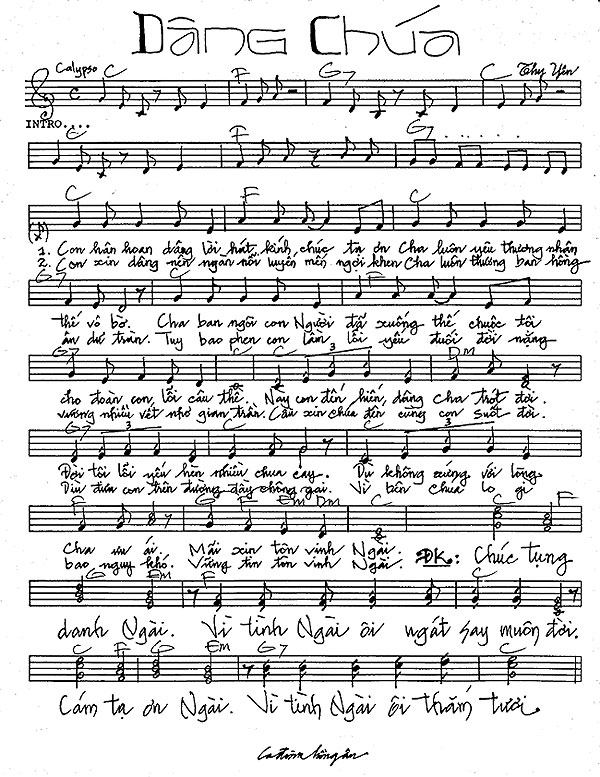 Dâng Chúa
Calypso C F G7 C Thy Yên
INTRO....
C F G7 . . . . . .
C F C
1. Con hân hoan dâng lời hát, kính chúc tạ ơn Cha luôn yêu thương nhân
2. Con xin dâng nên ngàn nỗi luyến mến ngợi khen Cha luôn thương ban hồng
G7 C F
thế vô bờ. Cha ban ngôi con Người đã xuống thế chuộc tội
ân dư tràn. Tuy bao phen con lầm lỗi yếu đuối đời nặng
G7 C 3 Dm
cho đoàn con, lỗi câu thề. Này con đến hiến dâng Cha trót đời.
vương nhiều vết nhơ gian trần. Cầu xin Chúa đến cùng con suốt đời.
G7 3 C 3
Đời tội lỗi yếu hèn nhiều chua cay. Dù không xứng với lòng
Dìu đưa con trên đường đầy chông gai. Vì bên Chúa lo gì
F G F Em Dm C C F
Cha ưu ái. Mãi xin tôn vinh Ngài. ĐK: Chúc tụng
bao nguy khó. Vững tin tôn vinh Ngài.
G Em F C
danh Ngài. Vì tình Ngài ôi ngát say muôn đời.
F G Em G7 C
Cám tạ ơn Ngài. Vì tình Ngài ôi thắm tươi.